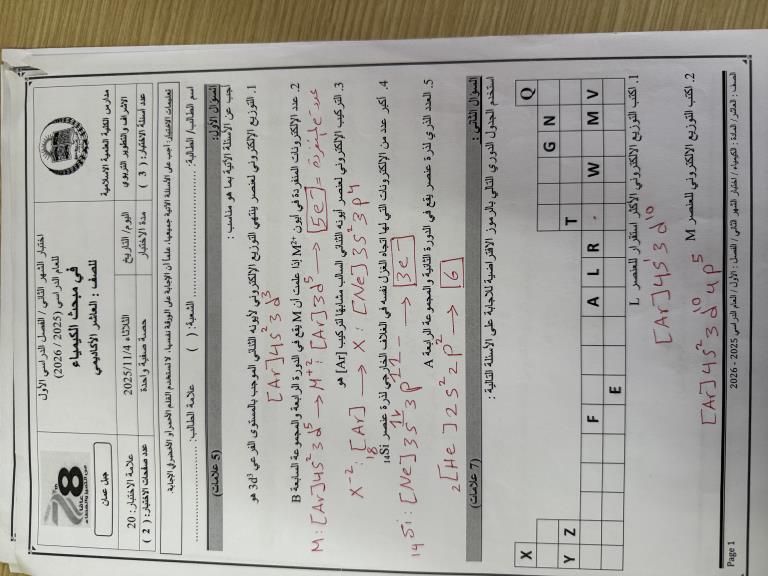 اختبار الشهر الثاني / الفصل الدراسي الأول
للعام الدراسي (2025 / 2026)
في مبحث الكيمياء
للصف : العاشر الأكاديمي
مدارس الكلية العلمية الإسلامية
جبل عمان
78
الاشراف والتطوير التربوي
اليوم/ التاريخ
الثلاثاء 2025/11/4
علامة الاختبار: 20
عدد أسئلة الاختبار: ( 3 )
مدة الاختبار
حصة صفية واحدة
عدد صفحات الاختبار: ( 2 )
تعليمات الاختبار: أجب على الأسئلة الآتية جميعها، علما أن الإجابة على الورقة نفسها. لا تستخدم القلم الأحمر او الأخضر في الإجابة.
اسم الطالب/ الطالبة: ........ الشعبة: ( ) علامة الطالب: ........
السؤال الأول: (5 علامات)
أجب عن الأسئلة الآتية بما هو مناسب :
1. التوزيع الإلكتروني لعنصر ينتهي التوزيع الإلكتروني لأيونه الثنائي الموجب بالمستوى الفرعي 3d³ هو
[Ar]4s² 3d³
2. عدد الإلكترونات المنفردة في أيون M²⁺ إذا علمت أن M يقع في الدورة الرابعة والمجموعة السابعة B
M: [Ar]4s² 3d⁵ → M⁺²: [Ar]3d⁵ → 5e =
3. التركيب الإلكتروني لعنصر أيونه الثنائي السالب مشابها لتركيب [Ar] هو
X⁻²: ₁₈[Ar] → X: [Ne]3s² 3p⁴
4. أكبر عدد من الإلكترونات التي لها اتجاه الغزل نفسه في الغلاف الخارجي لذرة عنصر ₁₄Si
₁₄Si: [Ne]3s² 3p² → 3e
5. العدد الذري لذرة عنصر يقع في الدورة الثانية والمجموعة الرابعة A
₂[He]2s² 2p² → 6
السؤال الثاني : (7 علامات)
استخدم الجدول الدوري التالي بالرموز الافتراضية للإجابة على الأسئلة التالية :
X Q
Y Z G N
T
F A L R W M V
E
1. اكتب التوزيع الإلكتروني الأكثر استقرار للعنصر L
[Ar]4s¹ 3d¹⁰
2. اكتب التوزيع الإلكتروني للعنصر M
[Ar]4s² 3d¹⁰ 4p⁵
الصف : العاشر / المادة : الكيمياء / اختبار الشهر الثاني / الفصل : الأول / العام الدراسي 2025 - 2026
Page 1